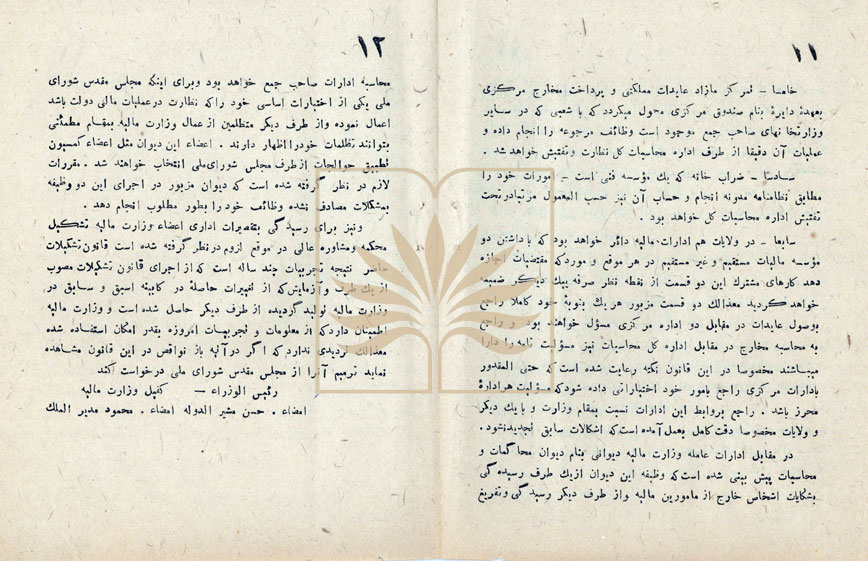 ۱۱
خامسا - تمرکز مازاد عایدات مملکتی و پرداخت مخارج مرکزی
بعهدهٔ دایرهٔ بنام صندوق مرکزی محول میگردد که با شعبی که در سایر
وزارتخانهای صاحب جمع موجود است وظائف مرجوعه را انجام داده و
عملیات آن دقیقا از طرف اداره محاسبات کل نظارت و تفتیش خواهد شد .
سادسا - ضراب خانه که یك مؤسسه فنی است - امورات خود را
مطابق نظامنامه مدونه انجام و حساب آن نیز حسب المعمول مرتبا در تحت
تفتیش اداره محاسبات کل خواهد بود .
سابعا - در ولایات هم ادارات مالیه دائر خواهد بود که با داشتن دو
مؤسسه مالیات مستقیم و غیر مستقیم در هر موقع و مورد که مقتضیات اجازه
دهد کارهای مشترك این دو قسمت از نقطه نظر صرفه بیك دیگر ضمیمه
خواهد گردید معذالك دو قسمت مزبور هر یك بنوبهٔ خود کاملا راجع
بوصول عایدات در مقابل دو اداره مرکزی مسؤل خواهند بود و راجع
به محاسبه مخارج در مقابل اداره کل محاسبات نیز مسؤلیت تامه را دارا
میباشند مخصوصا در این قانون نکته رعایت شده است که حتی المقدور
بادارات مرکزی راجع بامور خود اختیاراتی داده شود که مسؤلیت هر ادارهٔ
محرز باشد . راجع بروابط این ادارات نسبت بمقام وزارت و با یك دیگر
و ولایات مخصوصا دقت کامل بعمل آمده است که اشکالات سابق تجدید نشود .
در مقابل ادارات عامله وزارت مالیه دیوانی بنام دیوان محاکمات و
محاسبات پیش بینی شده است که وظیفه این دیوان از یك طرف رسیده گی
بشکایات اشخاص خارج از مامورین مالیه و از طرف دیگر رسیدگی و تفریغ
۱۲
محاسبه ادارات صاحب جمع خواهد بود و برای اینکه مجلس مقدس شورای
ملی یکی از اختیارات اساسی خود را که نظارت در عملیات مالی دولت باشد
اعمال نموده و از طرف دیگر متظلمین از عمال وزارت مالیه بمقام مطمئنی
بتوانند تظلمات خود را اظهار دارند . اعضاء این دیوان مثل اعضاء کمسیون
تطبیق حوالجات از طرف مجلس شورای ملی انتخاب خواهند شد . مقررات
لازم در نظر گرفته شده است که دیوان مزبور در اجرای این دو وظیفه
بمشکلات مصادف نشده وظائف خود را بطور مطلوب انجام دهد .
و نیز برای رسیدگی بتقصیرات اداری اعضاء وزارت مالیه تشکیل
محکمه و مشاوره عالی در موقع لزوم در نظر گرفته شده است قانون تشکیلات
حاضر نتیجه تجربیات چند ساله است که از اجرای قانون تشکیلات مصوب
از یك طرف و آزمایش که از تغییرات حاصلهٔ در کابینه اسبق و سابق در
وزارت مالیه تولید گردیده از طرف دیگر حاصل شده است و وزارت مالیه
اطمینان دارد که از معلومات و تجربیات امروزه بقدر امکان استفاده شده
معذالك تردیدی ندارد که اگر در آتیه باز نواقص در این قانون مشاهده
نماید ترمیم آنرا از مجلس مقدس شورای ملی درخواست کند
رئیس الوزراء - کفیل وزارت مالیه
امضاء . حسن مشیر الدوله امضاء . محمود مدیر الملك